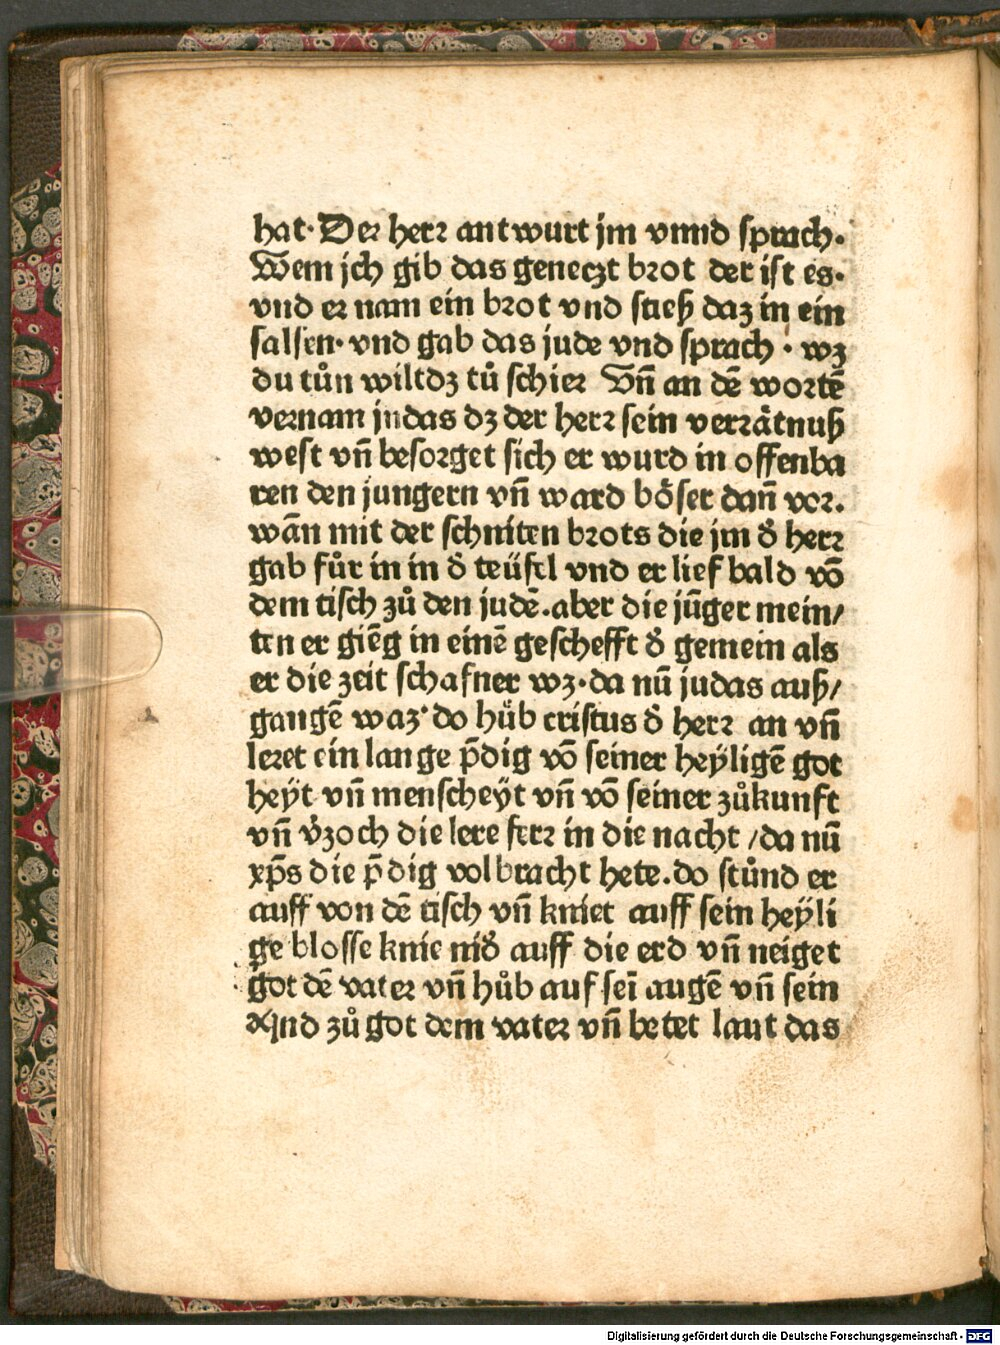 hat· Der herr antwurt jm vnnd sprach·
Wem jch gib das geneczt brot der ist es·
vnd er nam ein brot vnd stieß daz in ein
salsen· vnd gab das jude vnd sprach · wz
du tůn wilt dz tů schier Vn̄ an dē wortē
vernam judas dz der herr sein verrätnuß
west vn̄ besorget sich er wurd in offenba
ren den jungern vn̄ ward böser dan̄ vor.
wān mit der schniten brots die jm d̓ herr
gab fůr in in d̓ teüfel vnd er lief bald vō
dem tisch zů den judē. aber die jūger mein/
ten er giēg in einē geschefft d̓ gemein als
er die zeit schafner wz· da nū judas auß/
gangē waz· do hůb cristus d̓ herr an vn̄
leret ein lange p̄dig vō seiner heÿligē got
heÿt vn̄ menscheÿt vn̄ vō seiner zůkunft
vn̄ v̓zoch die lere ferr in die nacht /da nū
xp̄s die p̄dig volbracht hete. do stůnd er
auff von dē tisch vn̄ kniet auff sein heÿli
ge blosse knie nid̓ auff die erd vn̄ neiget
got dē vater vn̄ hůb auf sei̅ augē vn̄ sein
zů got dem vater vn̄ betet laut das
Digitalisierung gefördert durch die Deutsche Forschungsgemeinschaft - DFG